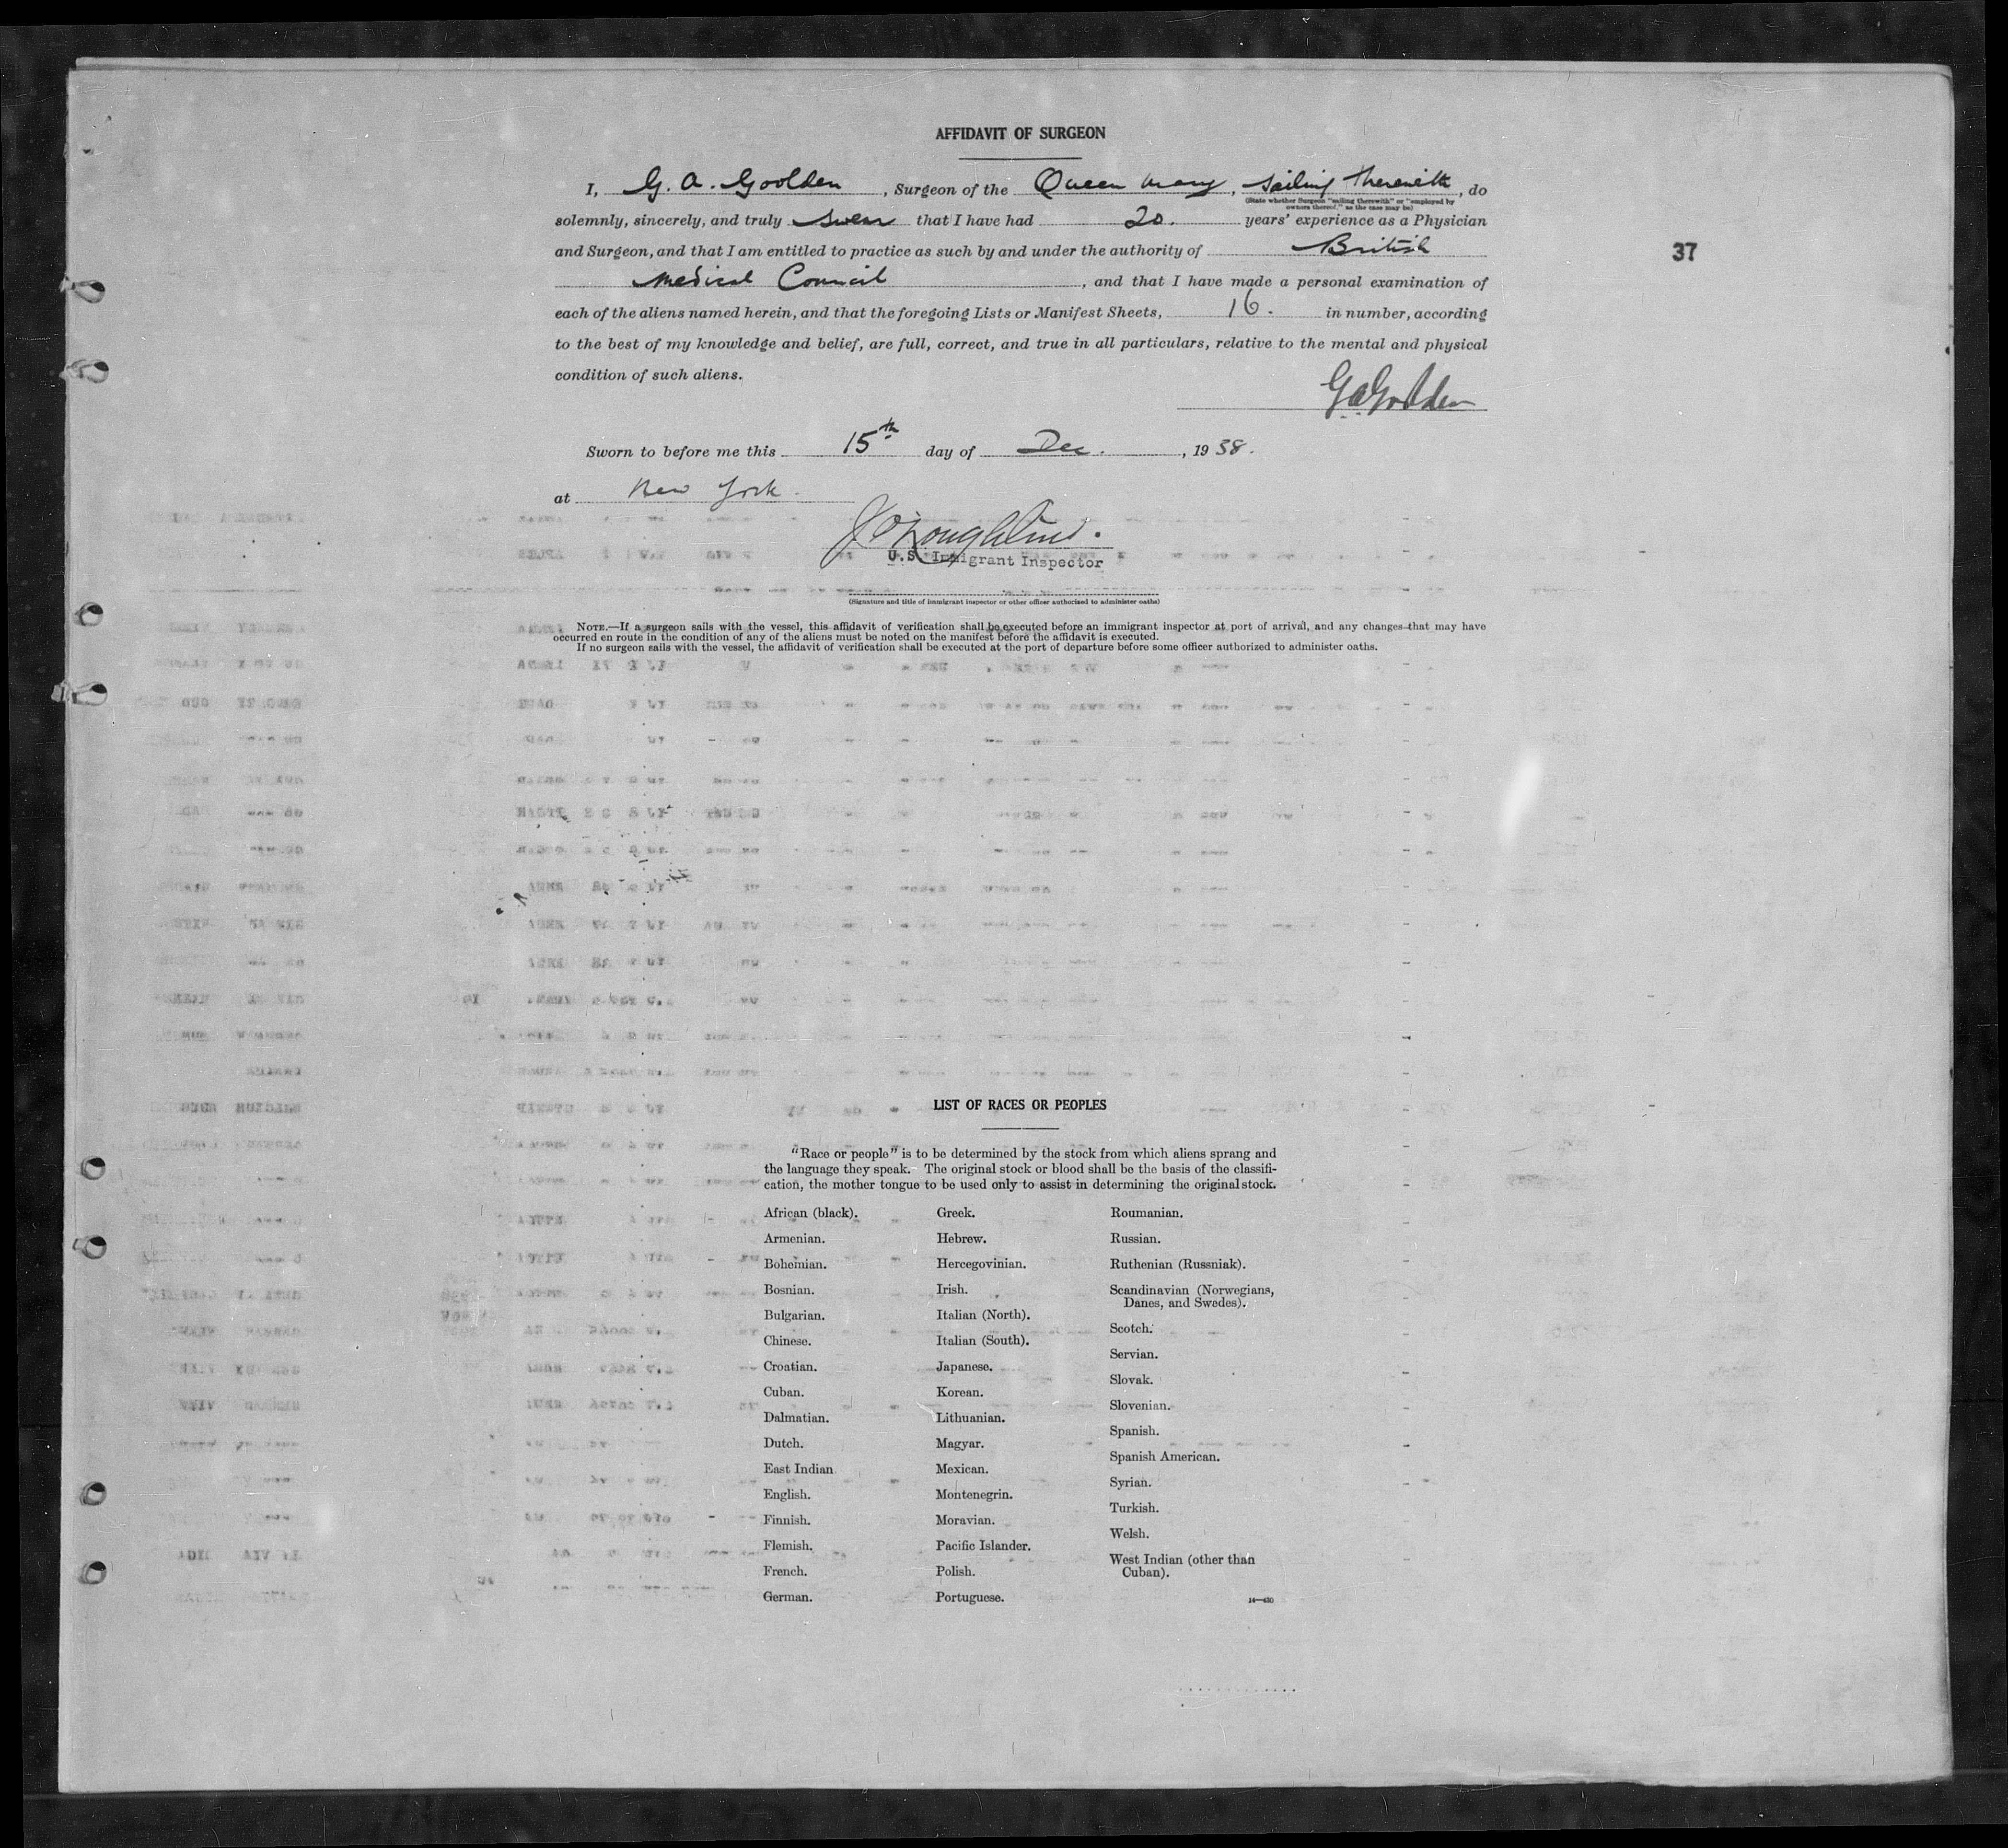 AFFIDAVIT OF SURGEON
I, G. A. Goolden, Surgeon of the Queen Mary, sailing therewith, do
(State whether Surgeon "sailing therewith" or "employed by
owners thereof," as the case may be)
solemnly, sincerely, and truly swear that I have had 20. years' experience as a Physician
and Surgeon, and that I am entitled to practice as such by and under the authority of British
37
Medical Council, and that I have made a personal examination of
each of the aliens named herein, and that the foregoing Lists or Manifest Sheets, 16. in number, according
to the best of my knowledge and belief, are full, correct, and true in all particulars, relative to the mental and physical
condition of such aliens.
G A Goolden
Sworn to before me this 15th day of Dec., 1938.
at New York.
U.S. Immigrant Inspector
(Signature and title of immigrant inspector or other officer authorized to administer oaths)
NOTE.—If a surgeon sails with the vessel, this affidavit of verification shall be executed before an immigrant inspector at port of arrival, and any changes that may have
occurred en route in the condition of any of the aliens must be noted on the manifest before the affidavit is executed.
If no surgeon sails with the vessel, the affidavit of verification shall be executed at the port of departure before some officer authorized to administer oaths.
LIST OF RACES OR PEOPLES
"Race or people" is to be determined by the stock from which aliens sprang and
the language they speak. The original stock or blood shall be the basis of the classifi-
cation, the mother tongue to be used only to assist in determining the original stock.
African (black).
Armenian.
Bohemian.
Bosnian.
Bulgarian.
Chinese.
Croatian.
Cuban.
Dalmatian.
Dutch.
East Indian
English.
Finnish.
Flemish.
French.
German.
Greek.
Hebrew.
Hercegovinian.
Irish.
Italian (North).
Italian (South).
Japanese.
Korean.
Lithuanian.
Magyar.
Mexican.
Montenegrin.
Moravian.
Pacific Islander.
Polish.
Portuguese.
Roumanian.
Russian.
Ruthenian (Russniak).
Scandinavian (Norwegians,
Danes, and Swedes).
Scotch.
Servian.
Slovak.
Slovenian.
Spanish.
Spanish American.
Syrian.
Turkish.
Welsh.
West Indian (other than
Cuban).
14—430